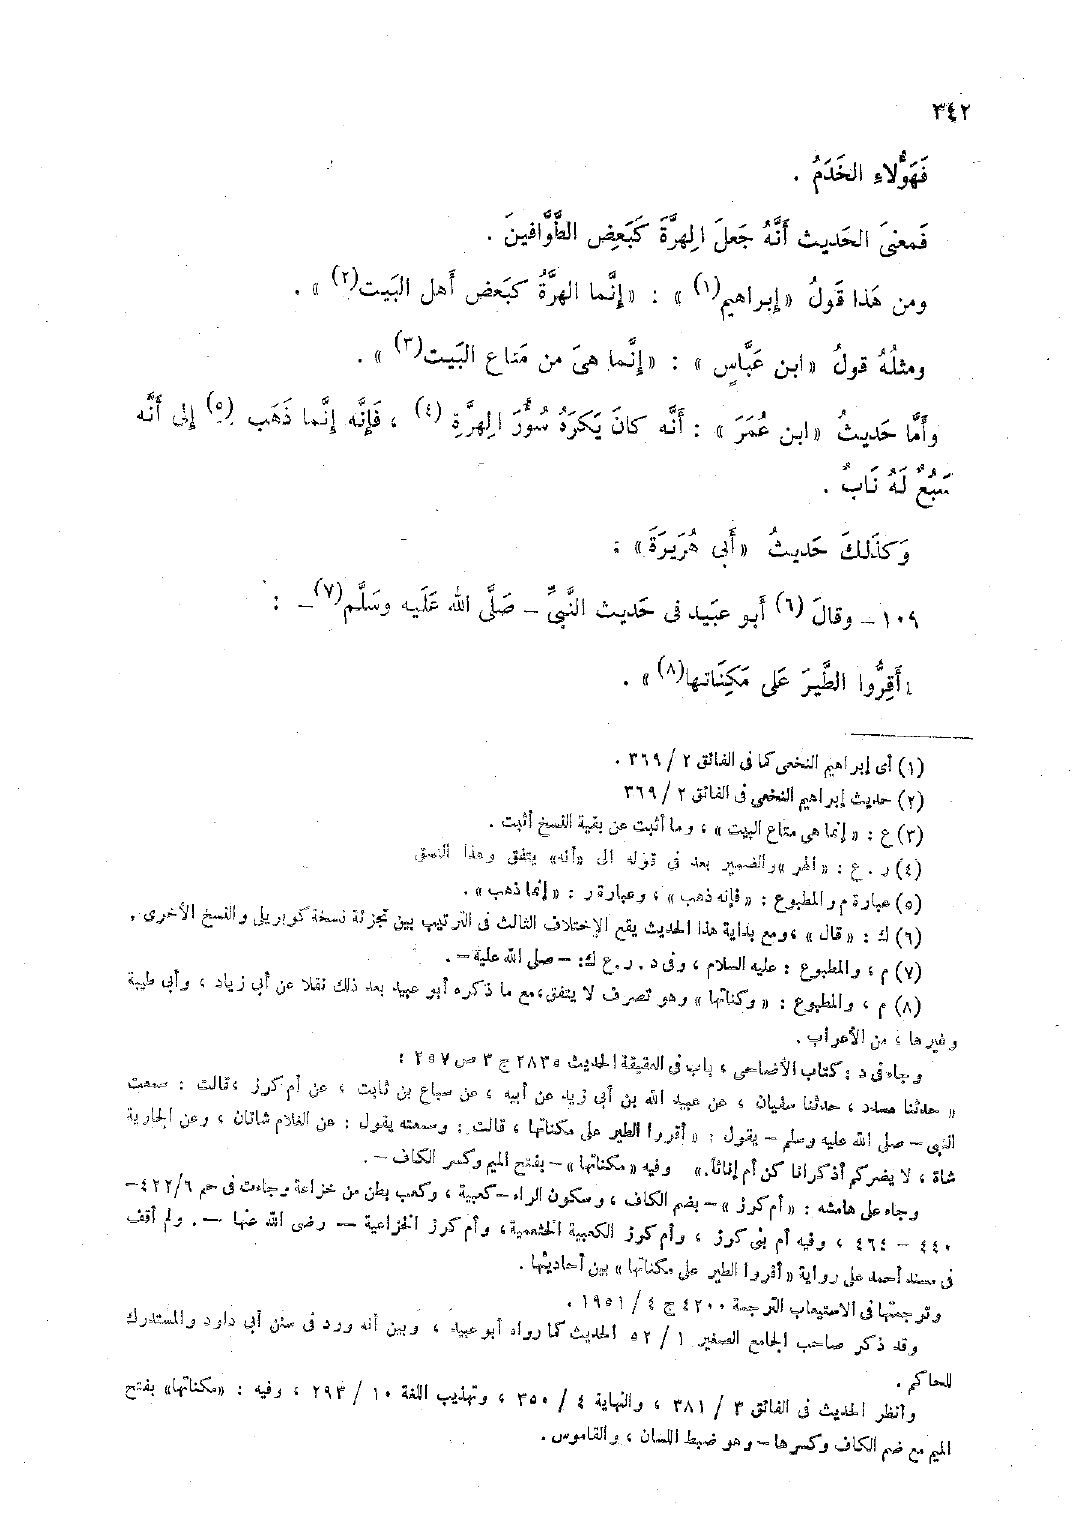 ٣٤٢
فَهَؤُلاءِ الخَدَمُ .
فَمعنىَ الحَديث أَنَّهُ جَعلَ الهِرَّةَ كَبَعضِ الطَّوَّافينَ .
ومن هَذا قَولُ «إبراهيم(١)» : «إنَّما الهرَّةُ كبَعض أَهل البَيت(٢)» .
ومثلُهُ قولُ «ابن عَبَّاسٍ» : «إنَّما هىَ من مَتاع البَيت(٣)» .
وأَمَّا حَديثُ «ابن عُمَرَ» : أَنَّه كانَ يَكرَهُ سُؤْرَ الهِرَّةِ (٤) ، فَإنَّه إنَّما ذَهَب (٥) إلى أَنَّه
سَبُعٌ لَهُ نَابٌ .
وَكذَلكَ حَديثُ «أَبى هُرَيرَةَ» :
١٠٩ – وقالَ (٦) أَبو عبَيد فى حَديث النَّبىِّ – صَلَّى الله عَلَيه وسَلَّم(٧)– :
«أَقِرُّوا الطَّيرَ عَلى مَكِنَاتها(٨)» .
(١) أى إبراهيم النخعى كما فى الفائق ٢ / ٣٦٩ .
(٢) حديث إبراهيم النخعى فى الفائق ٢ / ٣٦٩
(٣) ع : «إنما هى متاع البيت» ، وما أثبت عن بقية النسخ أثبت .
(٤) ر . ع : «الهر» والضمير بعد فى قوله الى «أنه» يتفق وهذا النسق
(٥) عبارة م والمطبوع : «فإنه ذهب» ، وعبارة ر : «إنما ذهب» .
(٦) ك : «قال» ، ومع بداية هذا الحديث يقع الإختلاف الثالث فى الترتيب بين تجزئة نسخة كوبريلى والنسخ الأخرى .
(٧) م ، والمطبوع : عليه السلام ، وفى د . ر . ع ك: – صلى الله علية – .
(٨) م ، والمطبوع : «وكناتها» وهو تصرف لا يتفق ، مع ما ذكره أبو عبيد بعد ذلك نقلا عن أبى زياد ، وأبى طيبة
وغيرها ، من الأعراب .
وجاء فى د : كتاب الأضاحى ، باب فى العقيقة الحديث ٢٨٣٥ ج ٣ ص ٢٥٧ :
« حدثنا مسدد ، حدثنا سفيان ، عن عبيد الله بن أبى زيد عن أبيه ، عن سباع بن ثابت ، عن أم كرز ، قالت : سمعت
النبى – صلى الله عليه وسلم – يقول : «أقروا الطير على مكناتها ، قالت : وسمعته يقول : عن الغلام شاتان ، وعن الجارية
شاة ، لا يضركم أذكرانا كن أم إناثا.» وفيه «مكناتها» – بفتح الميم وكسر الكاف – .
وجاء على هامشه : «أم كرز» – بضم الكاف ، وسكون الراء – كعبية ، وكعب بطن من خزاعة وجاءت فى حم ٤٢٢/٦–
٤٤٠ – ٤٦٤ ، وفيه أم بنى كرز ، وأم كرز الكعبية الخثعمية ، وأم كرز الخزاعية – رضى الله عنها – . ولم أقف
فى مسند أحمد على رواية «أقروا الطير على مكناتها» بين أحاديثها .
وترجمتها فى الاستيعاب الترجمة ٤٢٠٠ ج ٤ / ١٩٥١ .
وقد ذكر صاحب الجامع الصغير ١ / ٥٢ الحديث كما رواه أبو عبيد ، وبين أنه ورد فى سنن أبى داود والمستدرك
للحاكم .
وأنظر الحديث فى الفائق ٣ / ٣٨١ ، والنهاية ٤ / ٣٥٠ ، وتهذيب اللغة ١٠ / ٢٩٣ ، وفيه : «مكناتها» بفتح
الميم مع ضم الكاف وكسرها – وهو ضبط اللسان ، والقاموس .